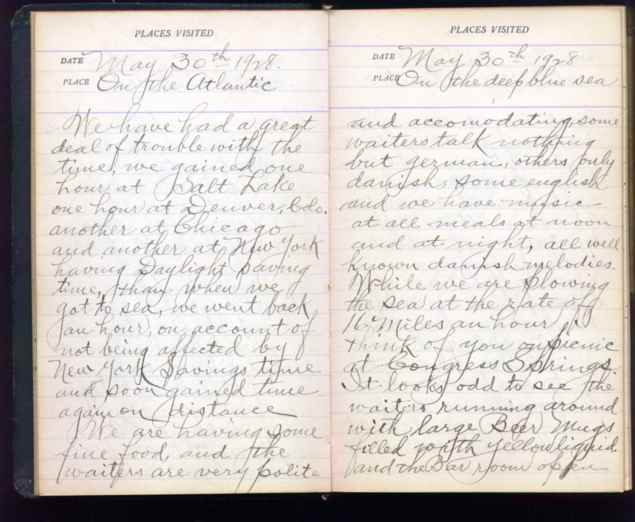 PLACES VISITED
DATE May 30th 1928.
PLACE On the Atlantic
We have had a great
deal of trouble with the
time, we gained one
hour at Salt Lake
one hour at Denver, Colo.
another at Chicago
and another at New York
having Daylight saving
time, than when we
got to sea, we went back
an hour, on account of
not being affected by
New York Savings time
and soon gained time
again on distance
We are having some
fine food, and the
waiters are very polite
PLACES VISITED
DATE May 30th 1928
PLACE On the deep blue sea
and accomodating, some
waiters talk nothing
but german, others only
danish, some english
and we have music
at all meals at noon
and at night, all well
known danish melodies.
While we are plowing
the sea at the rate of
16 Miles an hour I
think of you on picnic
at Congress Springs.
It looks odd to see the
waiters running around
with large Beer Mugs
filled with yellow liquid.
and the Bar room open